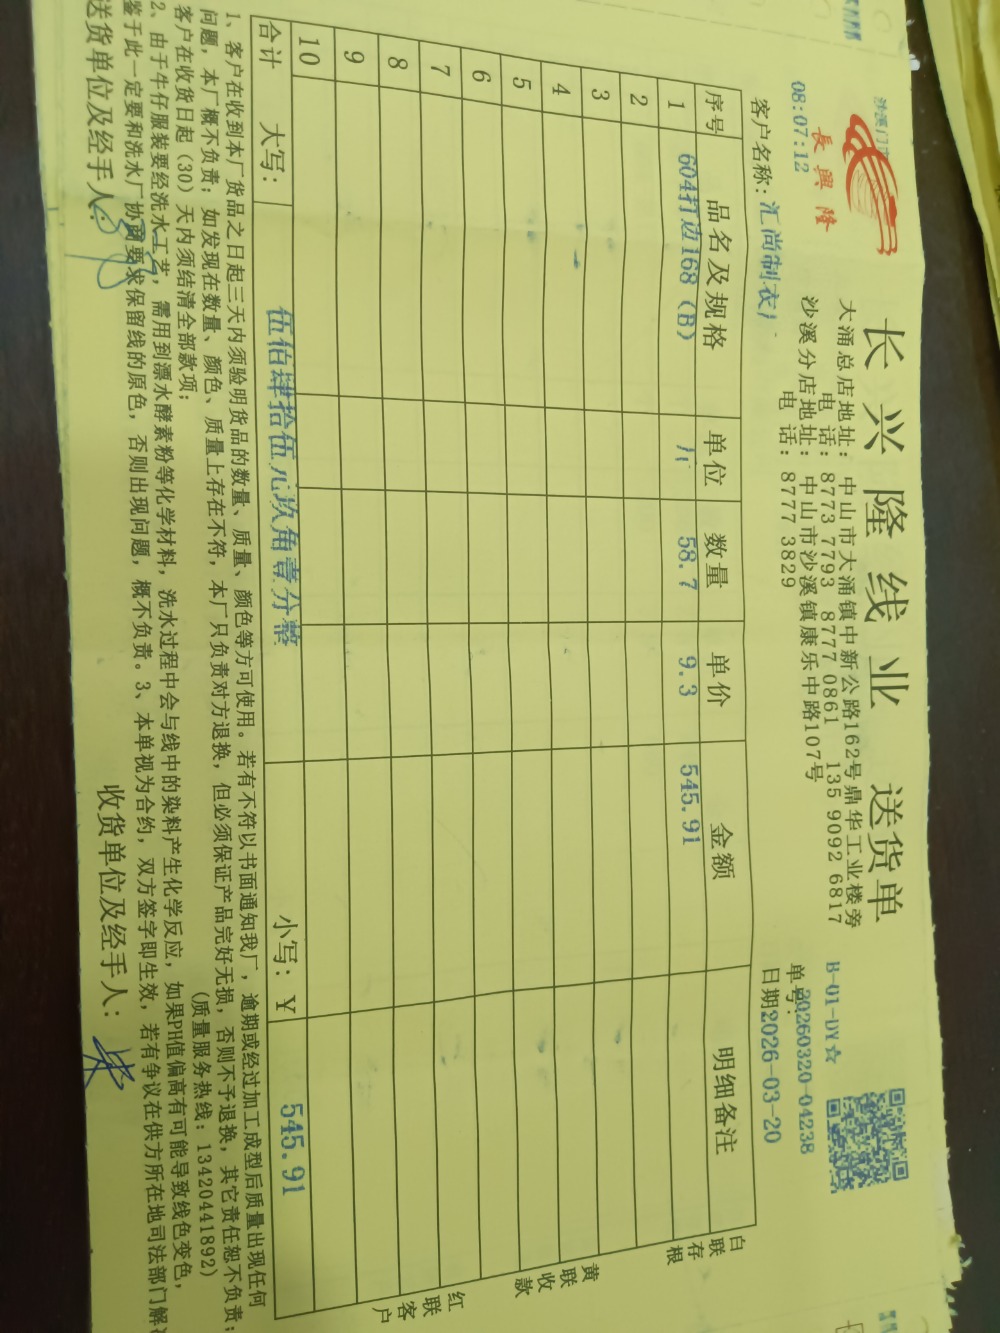 沙溪门市
08:07:12
長興隆
长兴隆线业 送货单
大涌总店地址: 中山市大涌镇中新公路162号鼎华工业楼旁
电 话: 8773 7793 8777 0861 135 9092 6817
沙溪分店地址: 中山市沙溪镇康乐中路107号
电 话: 8777 3829
B-01-DY☆
单号:20260320-04238
客户名称:汇尚制衣厂
日期2026-03-20
序号 品名及规格 单位 数量 单价 金额 明细备注
1 604打边168 (B) 58.7 9.3 545.91
2
3
4
5
6
7
8
9
10
合计 大写: 伍佰肆拾伍元玖角壹分整 小写: ¥ 545.91
白联存根
黄联收款
红联客户
1、客户在收到本厂货品之日起三天内须验明货品的数量、质量、颜色等方可使用。若有不符以书面通知我厂,逾期或经过加工成型后质量出现任何
问题,本厂概不负责;如发现在数量、颜色、质量上存在不符,本厂只负责对方退换,但必须保证产品完好无损,否则不予退换,其它责任恕不负责;
客户在收货日起(30)天内须结清全部款项; (质量服务热线:13420441892)
2、由于牛仔服装要经洗水工艺,需用到漂水酵素粉等化学材料,洗水过程中会与线中的染料产生化学反应,如果PH值偏高有可能导致线色变色,
鉴于此一定要和洗水厂协商要求保留线的原色,否则出现问题,概不负责。3、本单视为合约,双方签字即生效,若有争议在供方所在地司法部门解
送货单位及经手人: 收货单位及经手人: